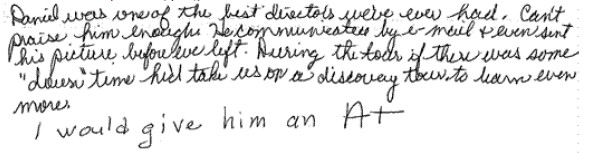 Daniel was one of the best directors we've ever had. Can't
praise him enough. He communicated by e-mail & even sent
his picture before we left. During the tour if there was some
"down" time he'd take us on a discovery tour to learn even
more.
I would give him an A+